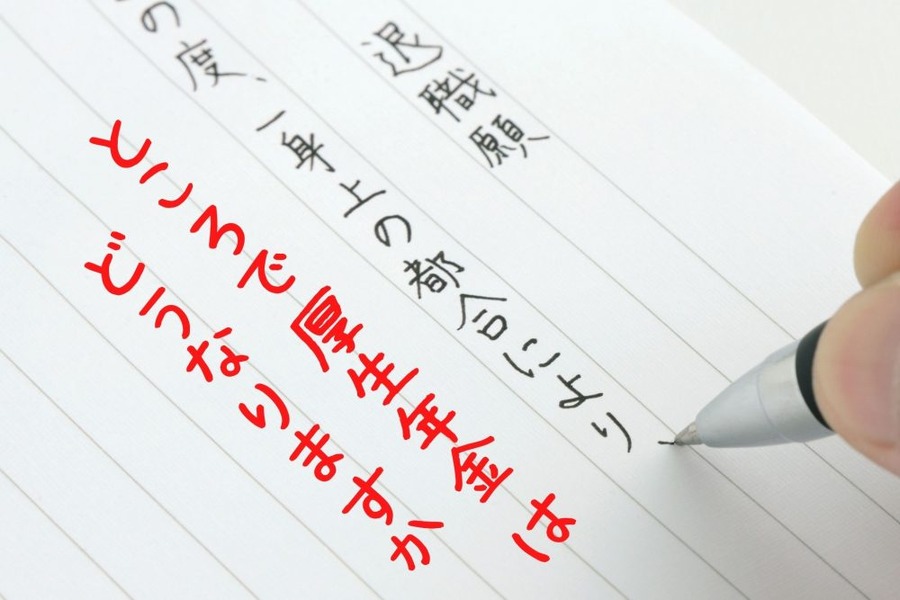 退職願
の度、一身上の都合により
ところで厚生年金は
どうなりますか